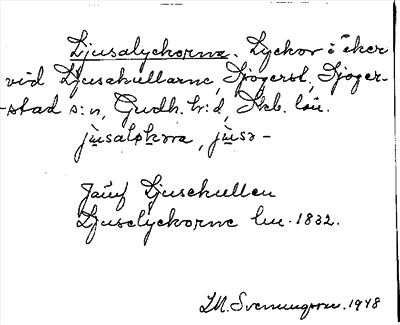 Ljusalyckorna. Lyckor i åker
vid Ljusakullarne, Sjögerst, Sjöger-
-stad s:n, Gudh. h:d, Skb. län.
Jämf Ljusekullen
Ljuselyckorne lm. 1832.
I.M. Svenungsson. 1948